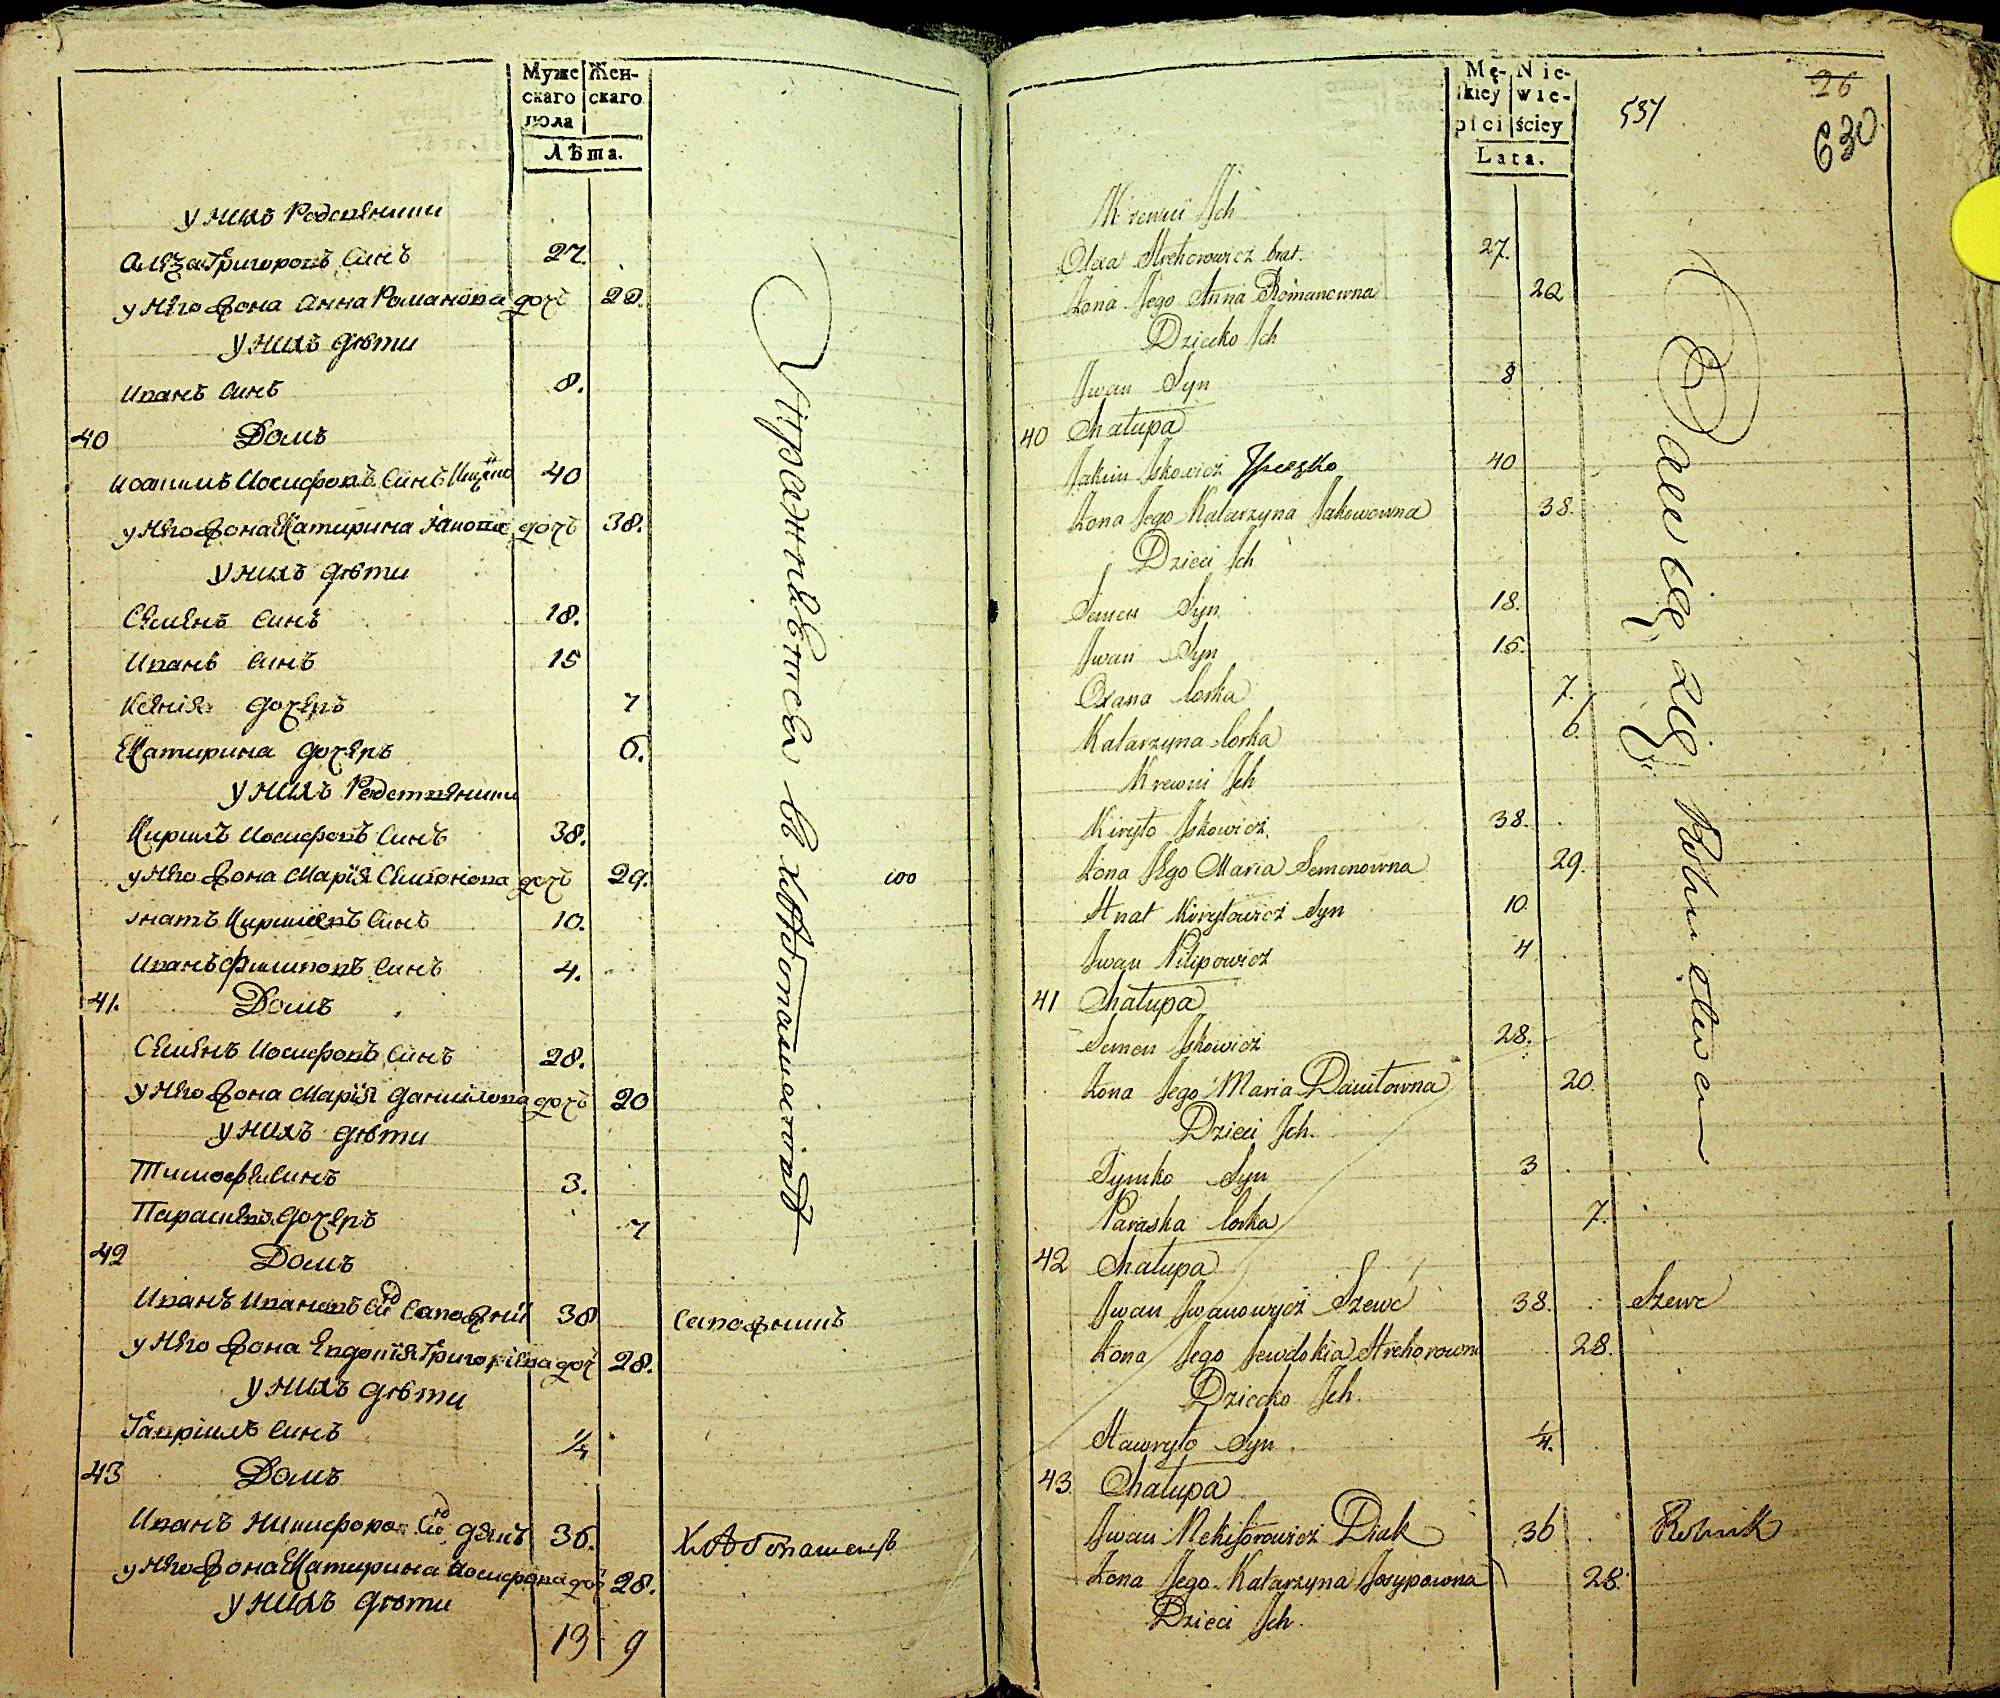 Муже Жен-
скаго скаго
пола
Лѣта.
у нихъ Родствѣнники
Алеѯа Григоровъ Синъ 27.
у него жона Анна Романова доч 22.
у нихъ дѣти
Иванъ Синъ 8.
40 Домъ
Иоакимъ Иосифовъ Синъ 40
у него жона Екатирина дочъ 38.
у нихъ дѣти
Семенъ Синъ 18.
Иванъ Синъ 15
Ксенія дочеръ 7
Екатирина дочеръ 6.
у нихъ Родствѣнники
Кирилъ Иосифовъ Синъ 38.
у него жона Марія Семіонова доч 29.
Гнатъ Кириловъ Синъ 10.
Иванъ Филиповъ Синъ 4.
41. Домъ
Семенъ Иосифовъ Синъ 28.
у него жона Марія Данилова дочъ 20
у нихъ дѣти
Тимофей Синъ 3.
Параскева дочеръ 7
42 Домъ
Иванъ Ивановъ Си Сапожній 38 Сапожникъ
у него жона Евдокія Григоріева доч 28.
у нихъ дѣти
Гавріилъ Синъ 1/4
43 Домъ
Иванъ Никифоров Си Дякъ 36. Хлѣбопашецъ
у него жона Екатирина Иосифова доч 28.
у нихъ дѣти
13 9
Упражняется в хлѣбопашествѣ
Mę- Nie-
skiey wie-
płci ściey
Lata.
537
26
630
Krewni Ich
Olexa Hrehorowicz brat. 27.
Zona Jego Anna Romanowna 22
Dziecko Ich
Iwan Syn 8
40 Chałupa
Jakim Iskowicz 40
Zona Jego Katarzyna Jakowowna 38.
Dzieci Ich
Semen Syn 18.
Iwan Syn 15.
Oxana Corka 7.
Katarzyna Corka 6.
Krewni Ich
Kiryło Iskowicz 38.
Zona Jego Maria Semenowna 29.
Hnat Kiryłowicz Syn 10.
Iwan Pilipowicz 4
41 Chałupa
Semen Iskowicz 28.
Zona Jego Maria Daniłowna 20.
Dzieci Ich.
Tymko Syn 3
Paraska Corka 7.
42 Chałupa
Iwan Iwanowycz Szewc 38. Szewc
Zona Jego Jewdokia Hrehorowna 28.
Dziecko Ich.
Hawryło Syn 1/4.
43. Chałupa
Iwan Nekiforowicz Diak 36 Rolnik
Zona Jego Katarzyna Josypowna 28.
Dzieci Ich.
Bawią się Rolnictwem